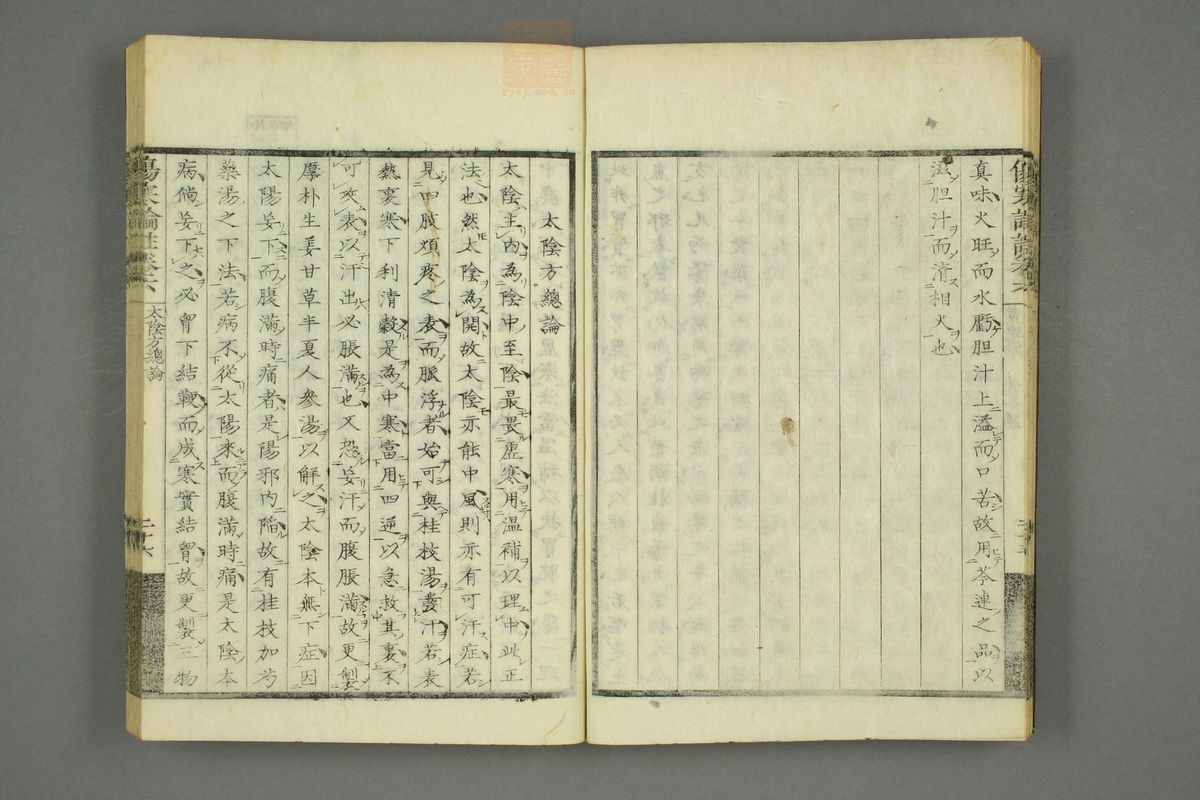 真味火旺而水虧胆汁上溢而口苦故用芩連之品以
滋胆汁而清相火也
太陰方總論
太陰主内為陰中至陰最畏虛寒用温補以理中此正
法也然太陰為開故太陰亦能中風則亦有可汗症若
見四肢煩疼之表而脈浮者始可與桂枝湯發汗若表
熱裏寒下利清穀是為中寒當用四逆以急救其裏不
可攻表以汗出必脹滿也又恐妄汗而腹脹滿故更製
厚朴生姜甘草半夏人參湯以解之太陰本無下症因
太陽妄下而腹滿時痛者是陽邪内陥故有桂枝加芍
藥湯之下法若病不從太陽來而腹滿時痛是太陰本
病倘妄下之必胷下結鞕而成寒實結胷故更製三物
傷寒論註卷六
太陰方總論
二十六
zysj.com.cn